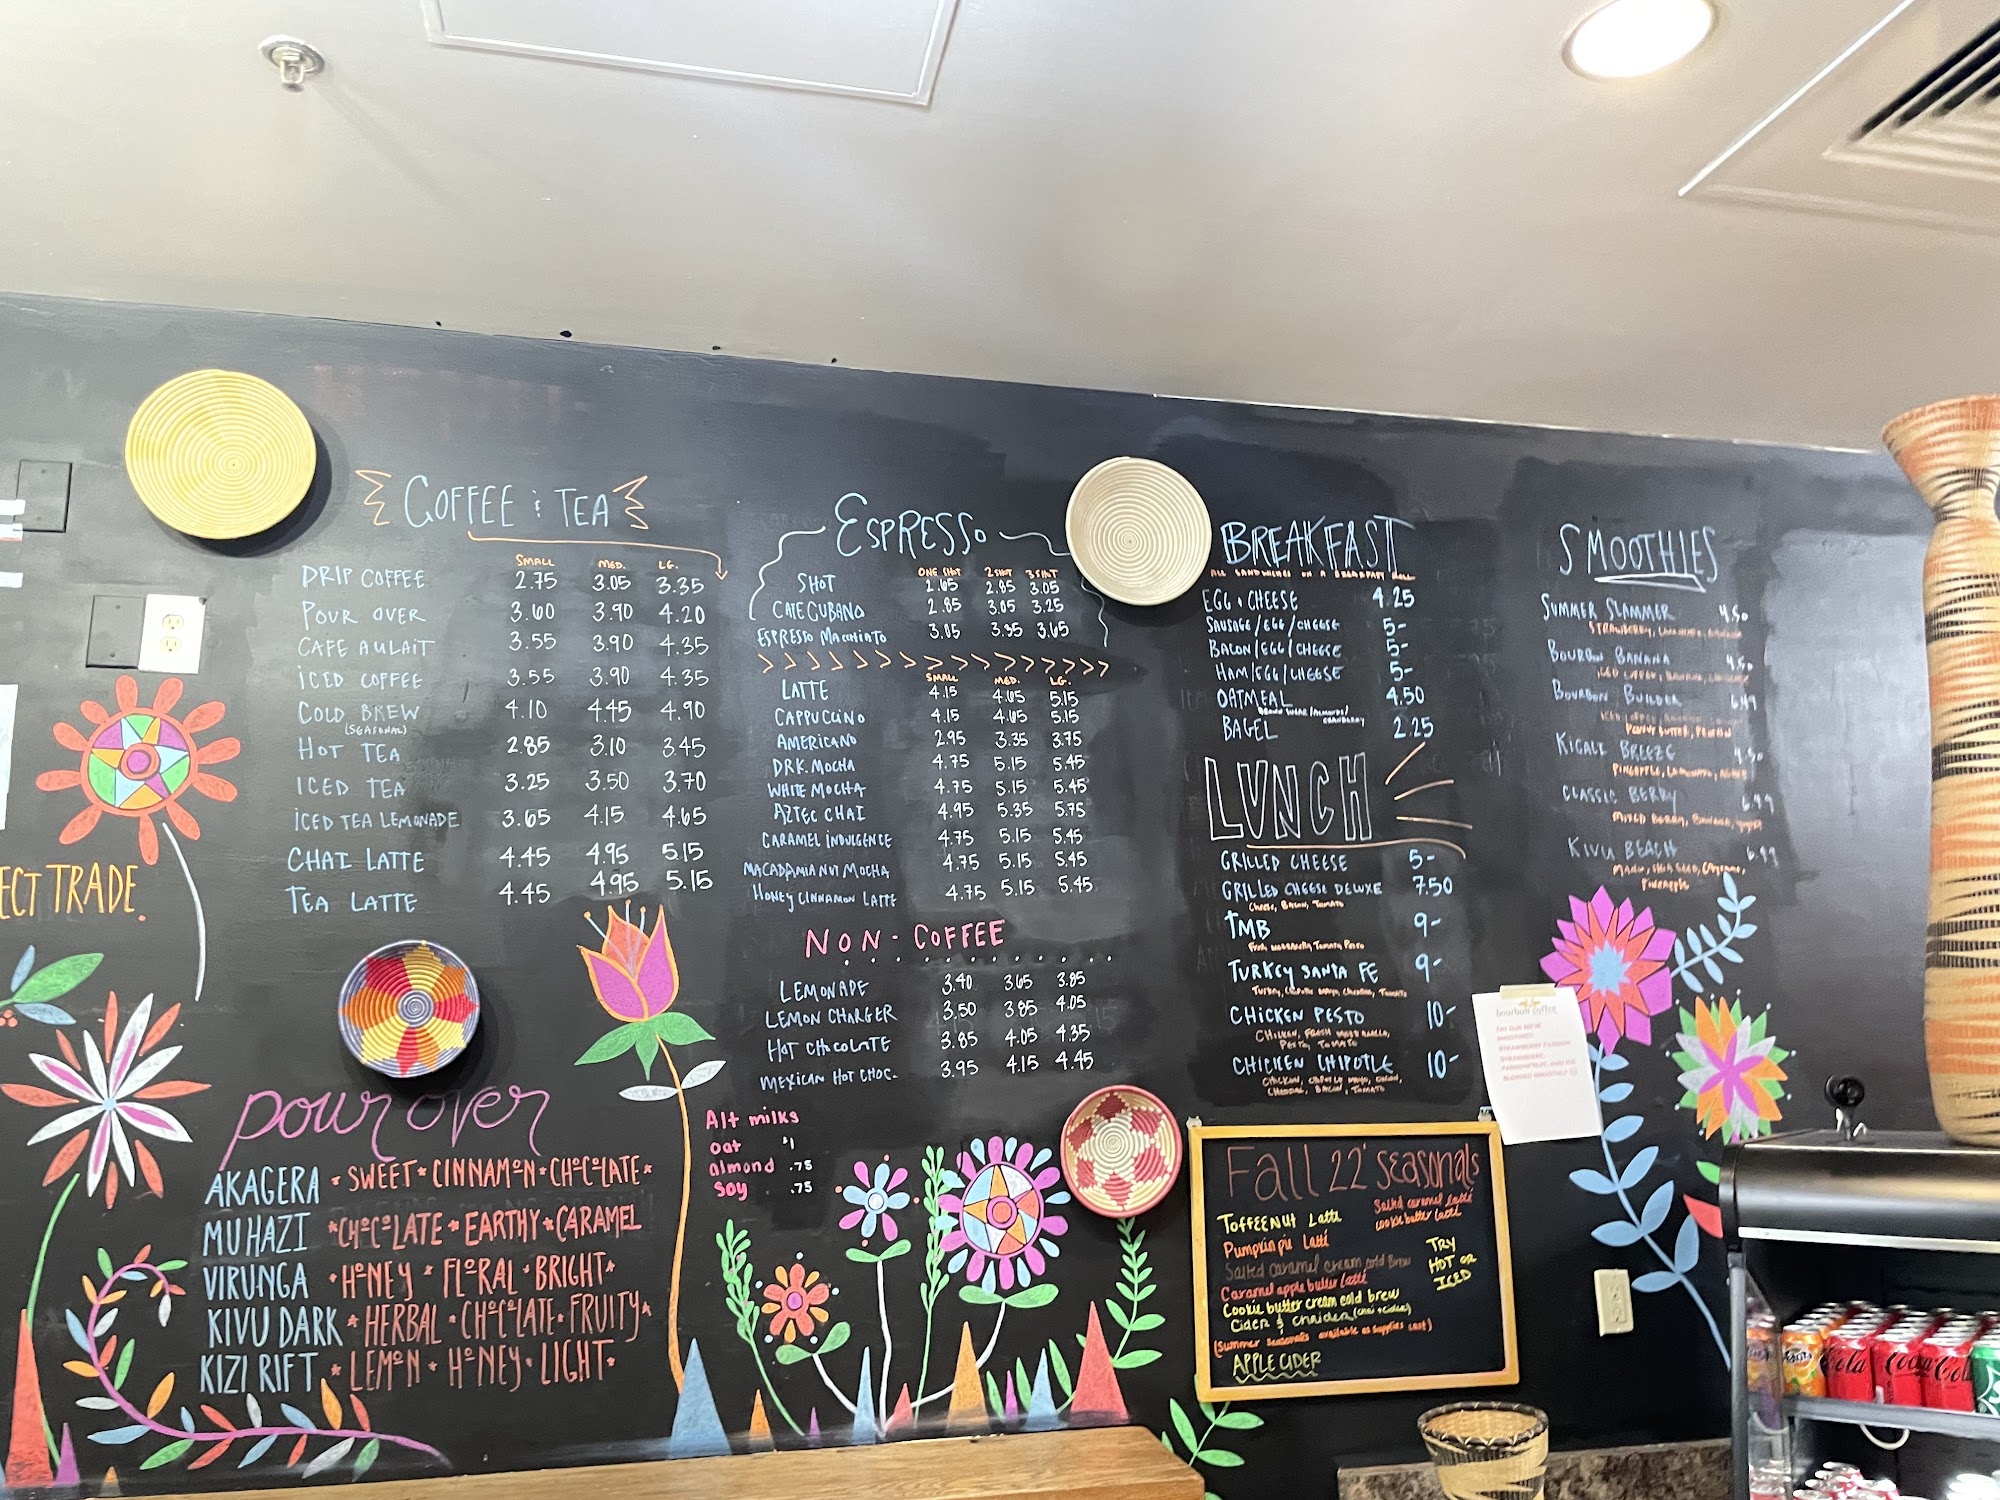 ECT TRADE.
COFFEE & TEA
SMALL MED. LG.
DRIP COFFEE 2.75 3.05 3.35
POUR OVER 3.60 3.90 4.20
CAFE AULAIT 3.55 3.90 4.35
ICED COFFEE 3.55 3.90 4.35
COLD BREW 4.10 4.45 4.90
(SEASONAL)
HOT TEA 2.85 3.10 3.45
ICED TEA 3.25 3.50 3.70
ICED TEA LEMONADE 3.65 4.15 4.65
CHAI LATTE 4.45 4.95 5.15
TEA LATTE 4.45 4.95 5.15
pour over
AKAGERA * SWEET * CINNAMON * CHOCOLATE *
MUHAZI * CHOCOLATE * EARTHY * CARAMEL
VIRUNGA * HONEY * FLORAL * BRIGHT *
KIVU DARK * HERBAL * CHOCOLATE * FRUITY *
KIZI RIFT * LEMON * HONEY * LIGHT *
ESPRESSO
ONE SHOT 2 SHOT 3 SHOT
SHOT 2.65 2.85 3.05
CAFE CUBANO 2.85 3.05 3.25
ESPRESSO MACCHIATO 3.05 3.35 3.65
SMALL MED. LG.
LATTE 4.15 4.65 5.15
CAPPUCCINO 4.15 4.65 5.15
AMERICANO 2.95 3.35 3.75
DRK. MOCHA 4.75 5.15 5.45
WHITE MOCHA 4.75 5.15 5.45
AZTEC CHAI 4.95 5.35 5.75
CARAMEL INDULGENCE 4.75 5.15 5.45
MACADAMIA NUT MOCHA 4.75 5.15 5.45
HONEY CINNAMON LATTE 4.75 5.15 5.45
NON-COFFEE
LEMONADE 3.40 3.65 3.85
LEMON CHARGER 3.50 3.85 4.05
HOT CHOCOLATE 3.85 4.05 4.35
MEXICAN HOT CHOC. 3.95 4.15 4.45
Alt milks
oat $1
almond .75
soy .75
BREAKFAST
ALL SANDWICHES ON A BREAKFAST ROLL
EGG & CHEESE 4.25
SAUSAGE/EGG/CHEESE 5-
BACON/EGG/CHEESE 5-
HAM/EGG/CHEESE 5-
OATMEAL 4.50
BROWN SUGAR/ALMONDS/
CRANBERRY
BAGEL 2.25
LUNCH
GRILLED CHEESE 5-
GRILLED CHEESE DELUXE 7.50
CHEESE, BACON, TOMATO
TMB 9-
Fresh mozzarella, Tomato, Pesto
TURKEY SANTA FE 9-
Turkey, Chipotle Mayo, Cheddar, Tomato
CHICKEN PESTO 10-
CHICKEN, FRESH MOZZARELLA,
PESTO, TOMATO
CHICKEN CHIPOTLE 10-
CHICKEN, CHIPOTLE MAYO, ONION,
CHEDDAR, BACON, TOMATO
Fall 22' seasonals
Salted caramel latté
cookie butter latté
TOFFEENUT Latte
Pumpkin pie Latté
Salted caramel cream cold Brew
Caramel apple butter latté
Cookie butter cream cold brew
Cider & chaider (chai + cider)
(Summer seasonals available as supplies last)
APPLE CIDER
TRY
HOT OR
ICED
SMOOTHIES
SUMMER SLAMMER 4.50
STRAWBERRY,
BOURBON BANANA 4.50
BOURBON BUILDER 6.49
PEANUT BUTTER, PROTEIN
KIGALI BREEZE 4.50
PINEAPPLE,
CLASSIC BERRY 6.49
MIXED BERRY, BANANA,
KIVU BEACH 6.49
Pineapple
bourbon coffee
TRY OUR NEW
SMOOTHIE!
STRAWBERRY PASSION
STRAWBERRY,
PASSIONFRUIT, AND ICE
BLENDED SMOOTHLY
Cola
Coca-Cola